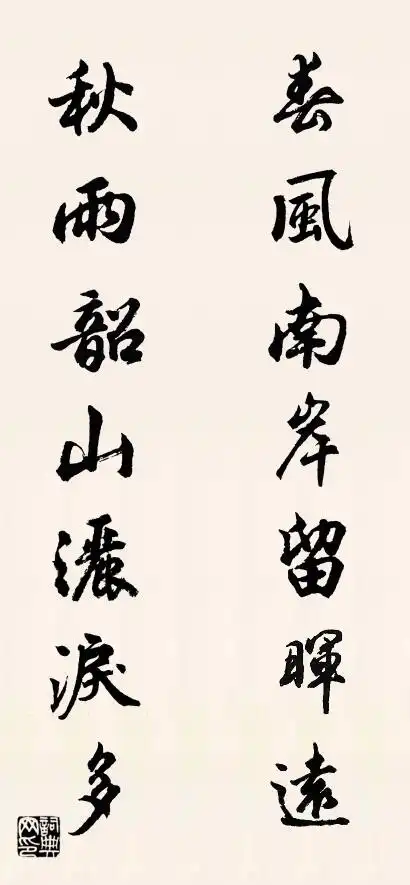 春風南岸留暉遠
秋雨韶山灑淚多
詞典網印